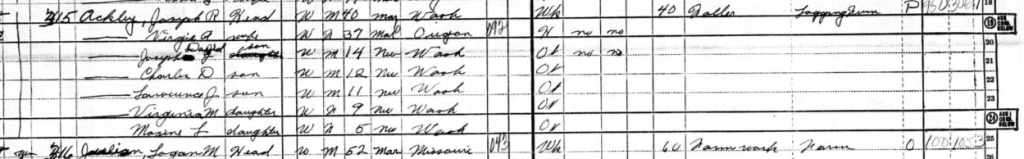 315 Ackley, Joseph R Head W M 40 Mar Wash Wk 40 Faller Logging Firm P 950 306 1
— Virgie A wife W F 37 Mar Oregon 092 H no no
— Joseph David son W M 14 Nev Wash Ot no no 20
— Charles D son W M 12 Nev Wash Ot 21
— Lawrence J son W M 11 Nev Wash Ot 22
— Virginia M daughter W F 9 Nev Wash Ot 23
— Maxine L daughter W F 5 Nev Wash Ot
316 Logan M Head W M 52 Mar Missouri 043 Wk 60 Farm work Farm O 100 105 3 25